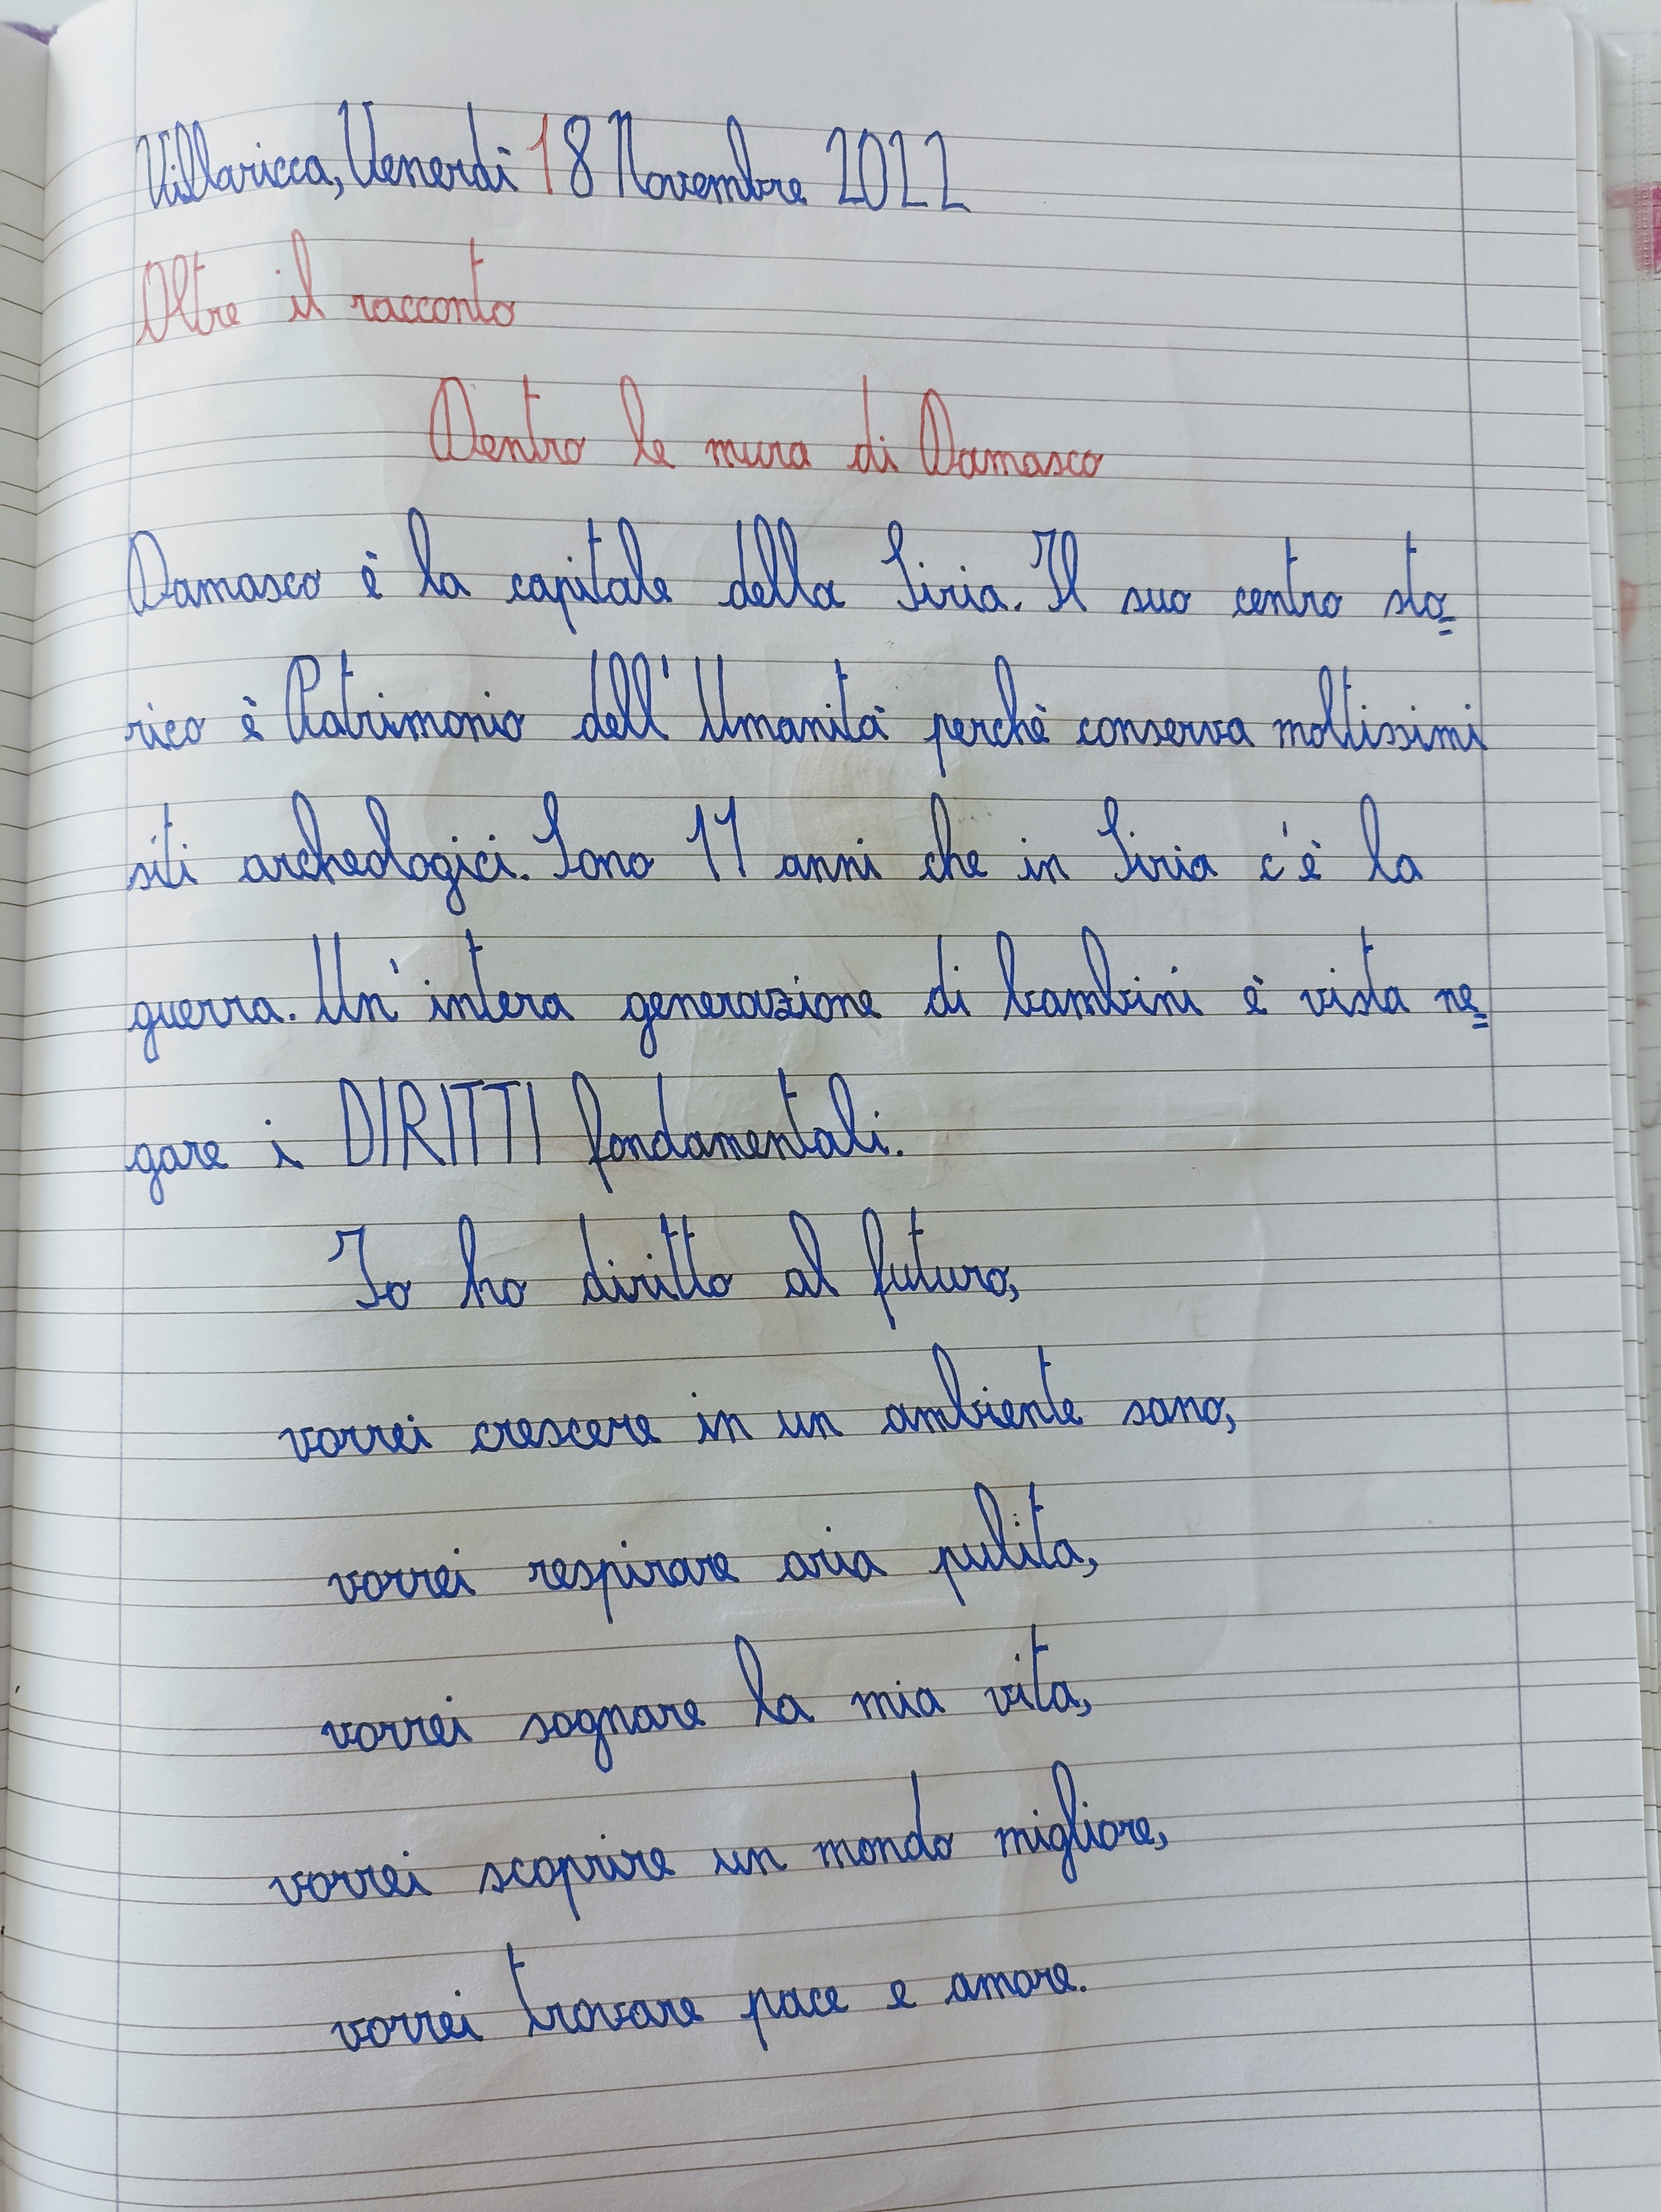 Villaricca, Venerdì 18 Novembre 2022
Oltre il racconto
Dentro le mura di Damasco
Damasco è la capitale della Siria. Il suo centro sto=
rico è Patrimonio dell'Umanità perchè conserva moltissimi
siti archeologici. Sono 11 anni che in Siria c'è la
guerra. Un'intera generazione di bambini è vista ne=
gare i DIRITTI fondamentali.
Io ho diritto al futuro,
vorrei crescere in un ambiente sano,
vorrei respirare aria pulita,
vorrei sognare la mia vita,
vorrei scoprire un mondo migliore,
vorrei trovare pace e amore.